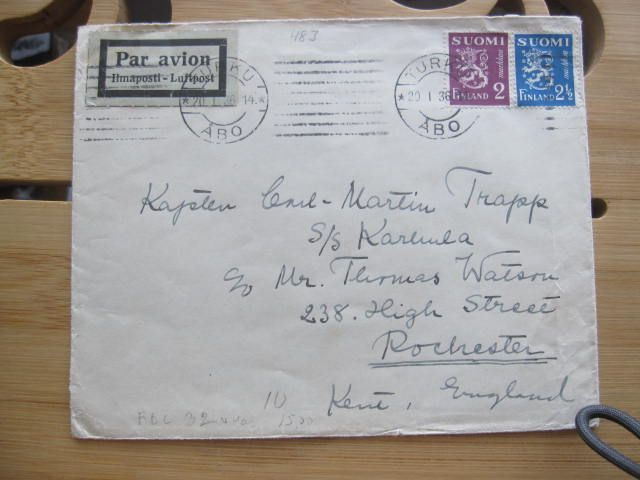 483
Par avion
Ilmaposti - Luftpost
TURKU
* 20. I. 36. 14. *
ÅBO
TURKU
* 20. I 36
ÅBO
SUOMI
markkaa
FINLAND 2
SUOMI
FINLAND 2½
Kapten Carl-Martin Trapp
S/S Karhula
c/o Mr. Thomas Watson
238. High Street
Rochester
Kent, England